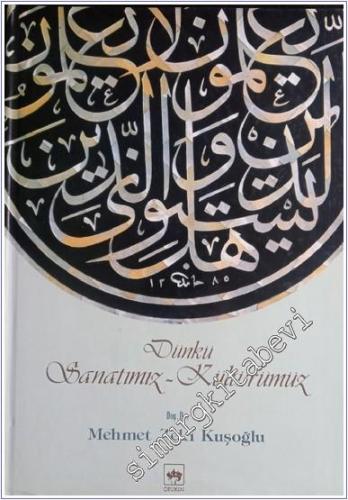 هل يستوي الذين يعلمون والذين لا يعلمون
Dünkü
Sanatımız - Kültürümüz
Doç. Dr.
Mehmet Zeki Kuşoğlu
ÖTÜKEN
simurgkitabevi